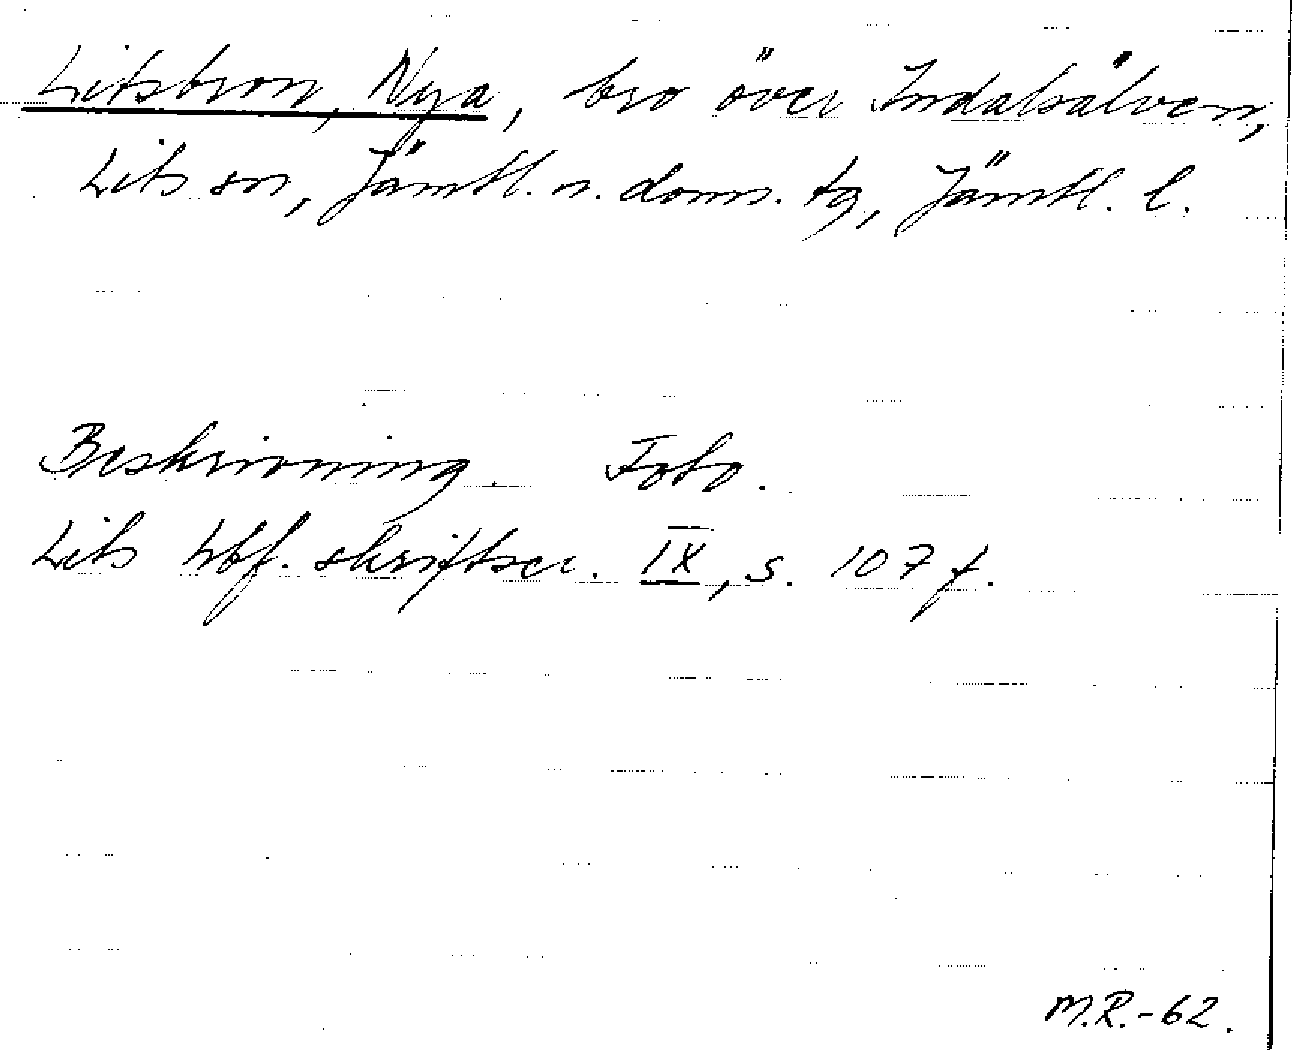 Litsbron, Nya, bro över Indalsälven,
Lits sn, Jämtl. n. doms. tg, Jämtl. l.
Beskrivning. Foto.
Lits hbf. skriftser. IX, s. 107 f.
M.R.-62.